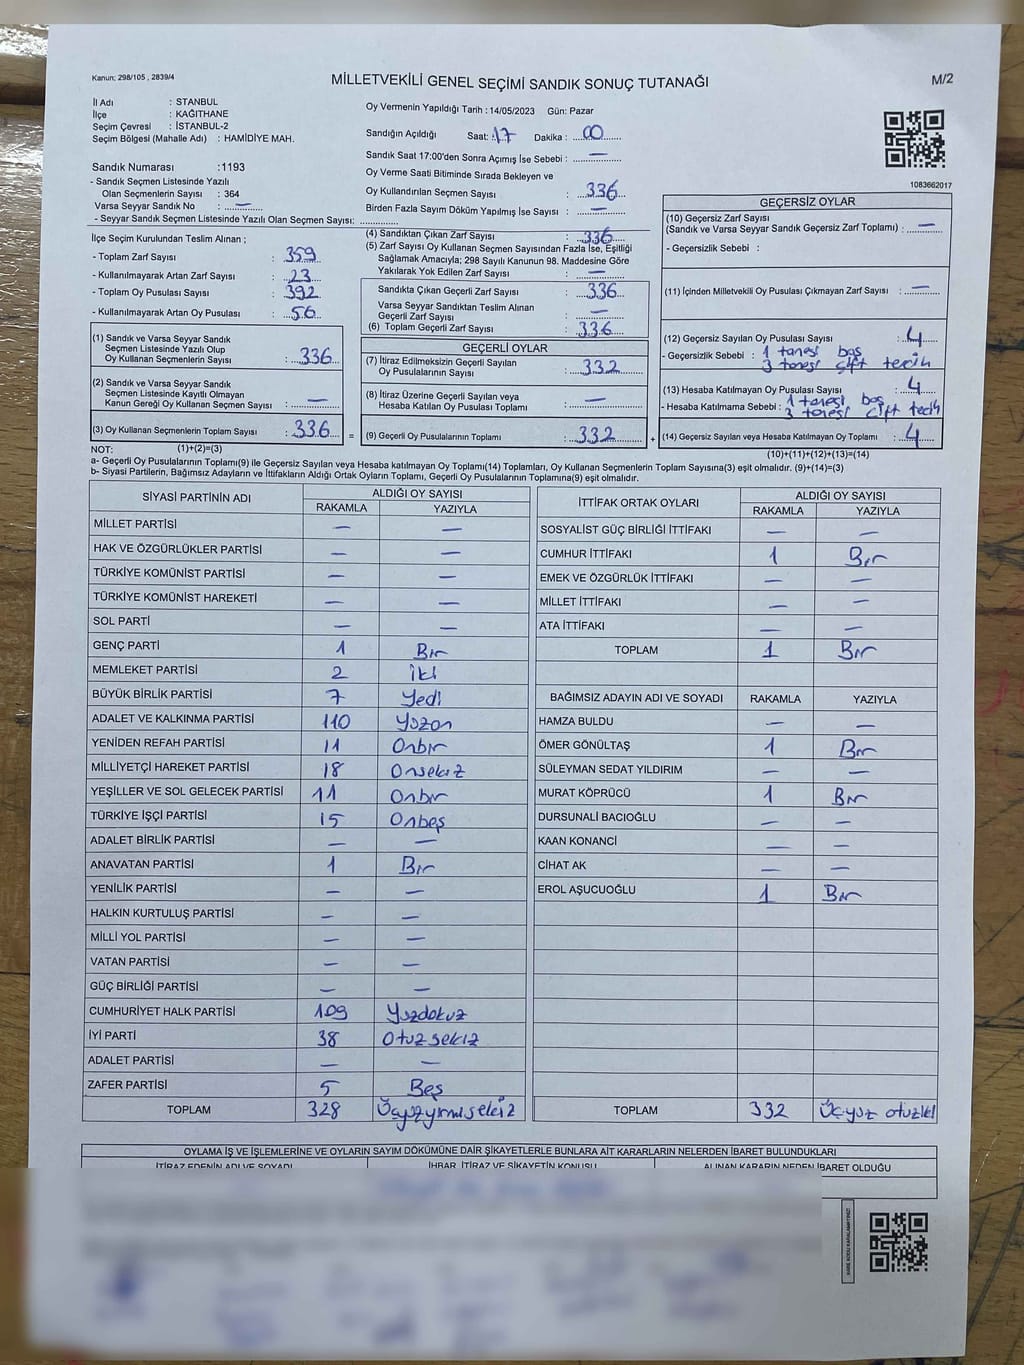 Kanun; 298/105 , 2839/4
MİLLETVEKİLİ GENEL SEÇİMİ SANDIK SONUÇ TUTANAĞI
M/2
İl Adı : STANBUL
İlçe : KAĞITHANE
Seçim Çevresi : İSTANBUL-2
Seçim Bölgesi (Mahalle Adı) : HAMİDİYE MAH.
Sandık Numarası :1193
- Sandık Seçmen Listesinde Yazılı
Olan Seçmenlerin Sayısı : 364
Varsa Seyyar Sandık No : —
- Seyyar Sandık Seçmen Listesinde Yazılı Olan Seçmen Sayısı: ..............
Oy Vermenin Yapıldığı Tarih : 14/05/2023 Gün: Pazar
Sandığın Açıldığı Saat: 17 Dakika : 00
Sandık Saat 17:00'den Sonra Açımış İse Sebebi : —
Oy Verme Saati Bitiminde Sırada Bekleyen ve
Oy Kullandırılan Seçmen Sayısı : 336
Birden Fazla Sayım Döküm Yapılmış İse Sayısı : —
1083662017
İlçe Seçim Kurulundan Teslim Alınan ;
- Toplam Zarf Sayısı : 359
- Kullanılmayarak Artan Zarf Sayısı : 23
- Toplam Oy Pusulası Sayısı : 392
- Kullanılmayarak Artan Oy Pusulası : 56
(1) Sandık ve Varsa Seyyar Sandık
Seçmen Listesinde Yazılı Olup
Oy Kullanan Seçmenlerin Sayısı : 336
(2) Sandık ve Varsa Seyyar Sandık
Seçmen Listesinde Kayıtlı Olmayan
Kanun Gereği Oy Kullanan Seçmen Sayısı : —
(3) Oy Kullanan Seçmenlerin Toplam Sayısı : 336 =
(4) Sandıktan Çıkan Zarf Sayısı : 336
(5) Zarf Sayısı Oy Kullanan Seçmen Sayısından Fazla İse, Eşitliği
Sağlamak Amacıyla; 298 Sayılı Kanunun 98. Maddesine Göre
Yakılarak Yok Edilen Zarf Sayısı : —
Sandıkta Çıkan Geçerli Zarf Sayısı : 336
Varsa Seyyar Sandıktan Teslim Alınan
Geçerli Zarf Sayısı : —
(6) Toplam Geçerli Zarf Sayısı : 336
GEÇERLİ OYLAR
(7) İtiraz Edilmeksizin Geçerli Sayılan
Oy Pusulalarının Sayısı : 332
(8) İtiraz Üzerine Geçerli Sayılan veya
Hesaba Katılan Oy Pusulası Toplamı : —
(9) Geçerli Oy Pusulalarının Toplamı : 332 +
GEÇERSİZ OYLAR
(10) Geçersiz Zarf Sayısı
(Sandık ve Varsa Seyyar Sandık Geçersiz Zarf Toplamı) : —
- Geçersizlik Sebebi :
(11) İçinden Milletvekili Oy Pusulası Çıkmayan Zarf Sayısı : —
(12) Geçersiz Sayılan Oy Pusulası Sayısı : 4
- Geçersizlik Sebebi : 1 tanesi boş
3 tanesi çift tecih
(13) Hesaba Katılmayan Oy Pusulası Sayısı : 4
- Hesaba Katılmama Sebebi : 1 tanesi boş
3 tanesi çift tecih
(14) Geçersiz Sayılan veya Hesaba Katılmayan Oy Toplamı : 4
NOT: (1)+(2)=(3) (10)+(11)+(12)+(13)=(14)
a- Geçerli Oy Pusulalarının Toplamı(9) ile Geçersiz Sayılan veya Hesaba katılmayan Oy Toplamı(14) Toplamları, Oy Kullanan Seçmenlerin Toplam Sayısına(3) eşit olmalıdır. (9)+(14)=(3)
b- Siyasi Partilerin, Bağımsız Adayların ve İttifakların Aldığı Ortak Oyların Toplamı, Geçerli Oy Pusulalarının Toplamına(9) eşit olmalıdır.
SİYASİ PARTİNİN ADI ALDIĞI OY SAYISI
RAKAMLA YAZIYLA
MİLLET PARTİSİ — —
HAK VE ÖZGÜRLÜKLER PARTİSİ — —
TÜRKİYE KOMÜNİST PARTİSİ — —
TÜRKİYE KOMÜNİST HAREKETİ — —
SOL PARTİ — —
GENÇ PARTİ 1 Bir
MEMLEKET PARTİSİ 2 iki
BÜYÜK BİRLİK PARTİSİ 7 Yedi
ADALET VE KALKINMA PARTİSİ 110 Yüzon
YENİDEN REFAH PARTİSİ 11 Onbir
MİLLİYETÇİ HAREKET PARTİSİ 18 Onsekiz
YEŞİLLER VE SOL GELECEK PARTİSİ 11 Onbir
TÜRKİYE İŞÇİ PARTİSİ 15 Onbeş
ADALET BİRLİK PARTİSİ — —
ANAVATAN PARTİSİ 1 Bir
YENİLİK PARTİSİ — —
HALKIN KURTULUŞ PARTİSİ — —
MİLLİ YOL PARTİSİ — —
VATAN PARTİSİ — —
GÜÇ BİRLİĞİ PARTİSİ — —
CUMHURİYET HALK PARTİSİ 109 Yüzdokuz
İYİ PARTİ 38 Otuzsekiz
ADALET PARTİSİ — —
ZAFER PARTİSİ 5 Beş
TOPLAM 328 Üçyüzyirmisekiz
İTTİFAK ORTAK OYLARI ALDIĞI OY SAYISI
RAKAMLA YAZIYLA
SOSYALİST GÜÇ BİRLİĞİ İTTİFAKI — —
CUMHUR İTTİFAKI 1 Bir
EMEK VE ÖZGÜRLÜK İTTİFAKI — —
MİLLET İTTİFAKI — —
ATA İTTİFAKI — —
TOPLAM 1 Bir
BAĞIMSIZ ADAYIN ADI VE SOYADI RAKAMLA YAZIYLA
HAMZA BULDU — —
ÖMER GÖNÜLTAŞ 1 Bir
SÜLEYMAN SEDAT YILDIRIM — —
MURAT KÖPRÜCÜ 1 Bir
DURSUNALİ BACIOĞLU — —
KAAN KONANCİ — —
CİHAT AK — —
EROL AŞUCUOĞLU 1 Bir
TOPLAM 332 Üçyüz otuziki
OYLAMA İŞ VE İŞLEMLERİNE VE OYLARIN SAYIM DÖKÜMÜNE DAİR ŞİKAYETLERLE BUNLARA AİT KARARLARIN NELERDEN İBARET BULUNDUKLARI
İTİRAZ EDENİN ADI VE SOYADI İHBAR, İTİRAZ VE ŞİKAYETİN KONUSU ALINAN KARARIN NEDEN İBARET OLDUĞU